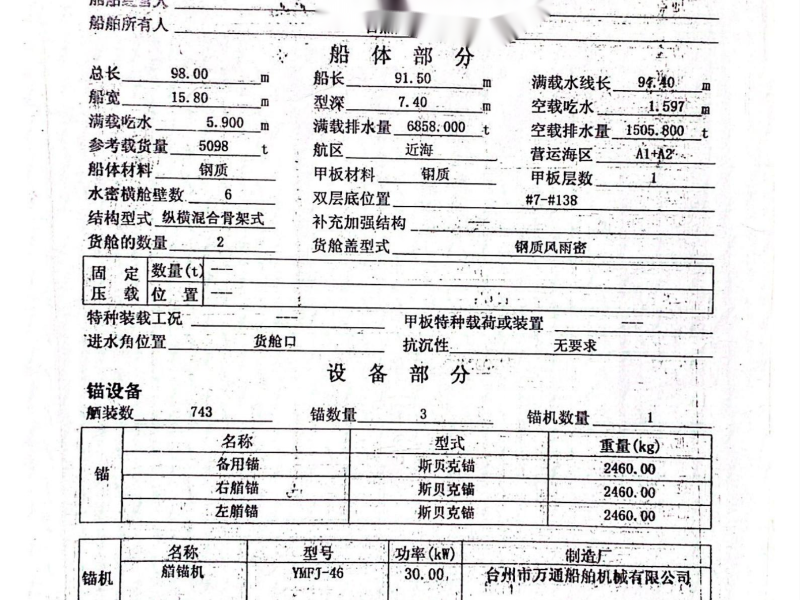 船舶经营人
船舶所有人
船 体 部 分
总长 98.00 m 船长 91.50 m 满载水线长 94.40 m
船宽 15.80 m 型深 7.40 m 空载吃水 1.597 m
满载吃水 5.900 m 满载排水量 6858.000 t 空载排水量 1505.800 t
参考载货量 5098 t 航区 近海 营运海区 A1+A2
船体材料 钢质 甲板材料 钢质 甲板层数 1
水密横舱壁数 6 双层底位置 #7-#138
结构型式 纵横混合骨架式 补充加强结构 ---
货舱的数量 2 货舱盖型式 钢质风雨密
固 定 数量(t) ---
压 载 位 置 ---
特种装载工况 --- 甲板特种载荷或装置 ---
进水角位置 货舱口 抗沉性 无要求
设 备 部 分
锚设备
舾装数 743 锚数量 3 锚机数量 1
名称 型式 重量(kg)
锚 备用锚 斯贝克锚 2460.00
右艏锚 斯贝克锚 2460.00
左艏锚 斯贝克锚 2460.00
名称 型号 功率(kW) 制造厂
锚机 艏锚机 YMFJ-46 30.00 台州市万通船舶机械有限公司